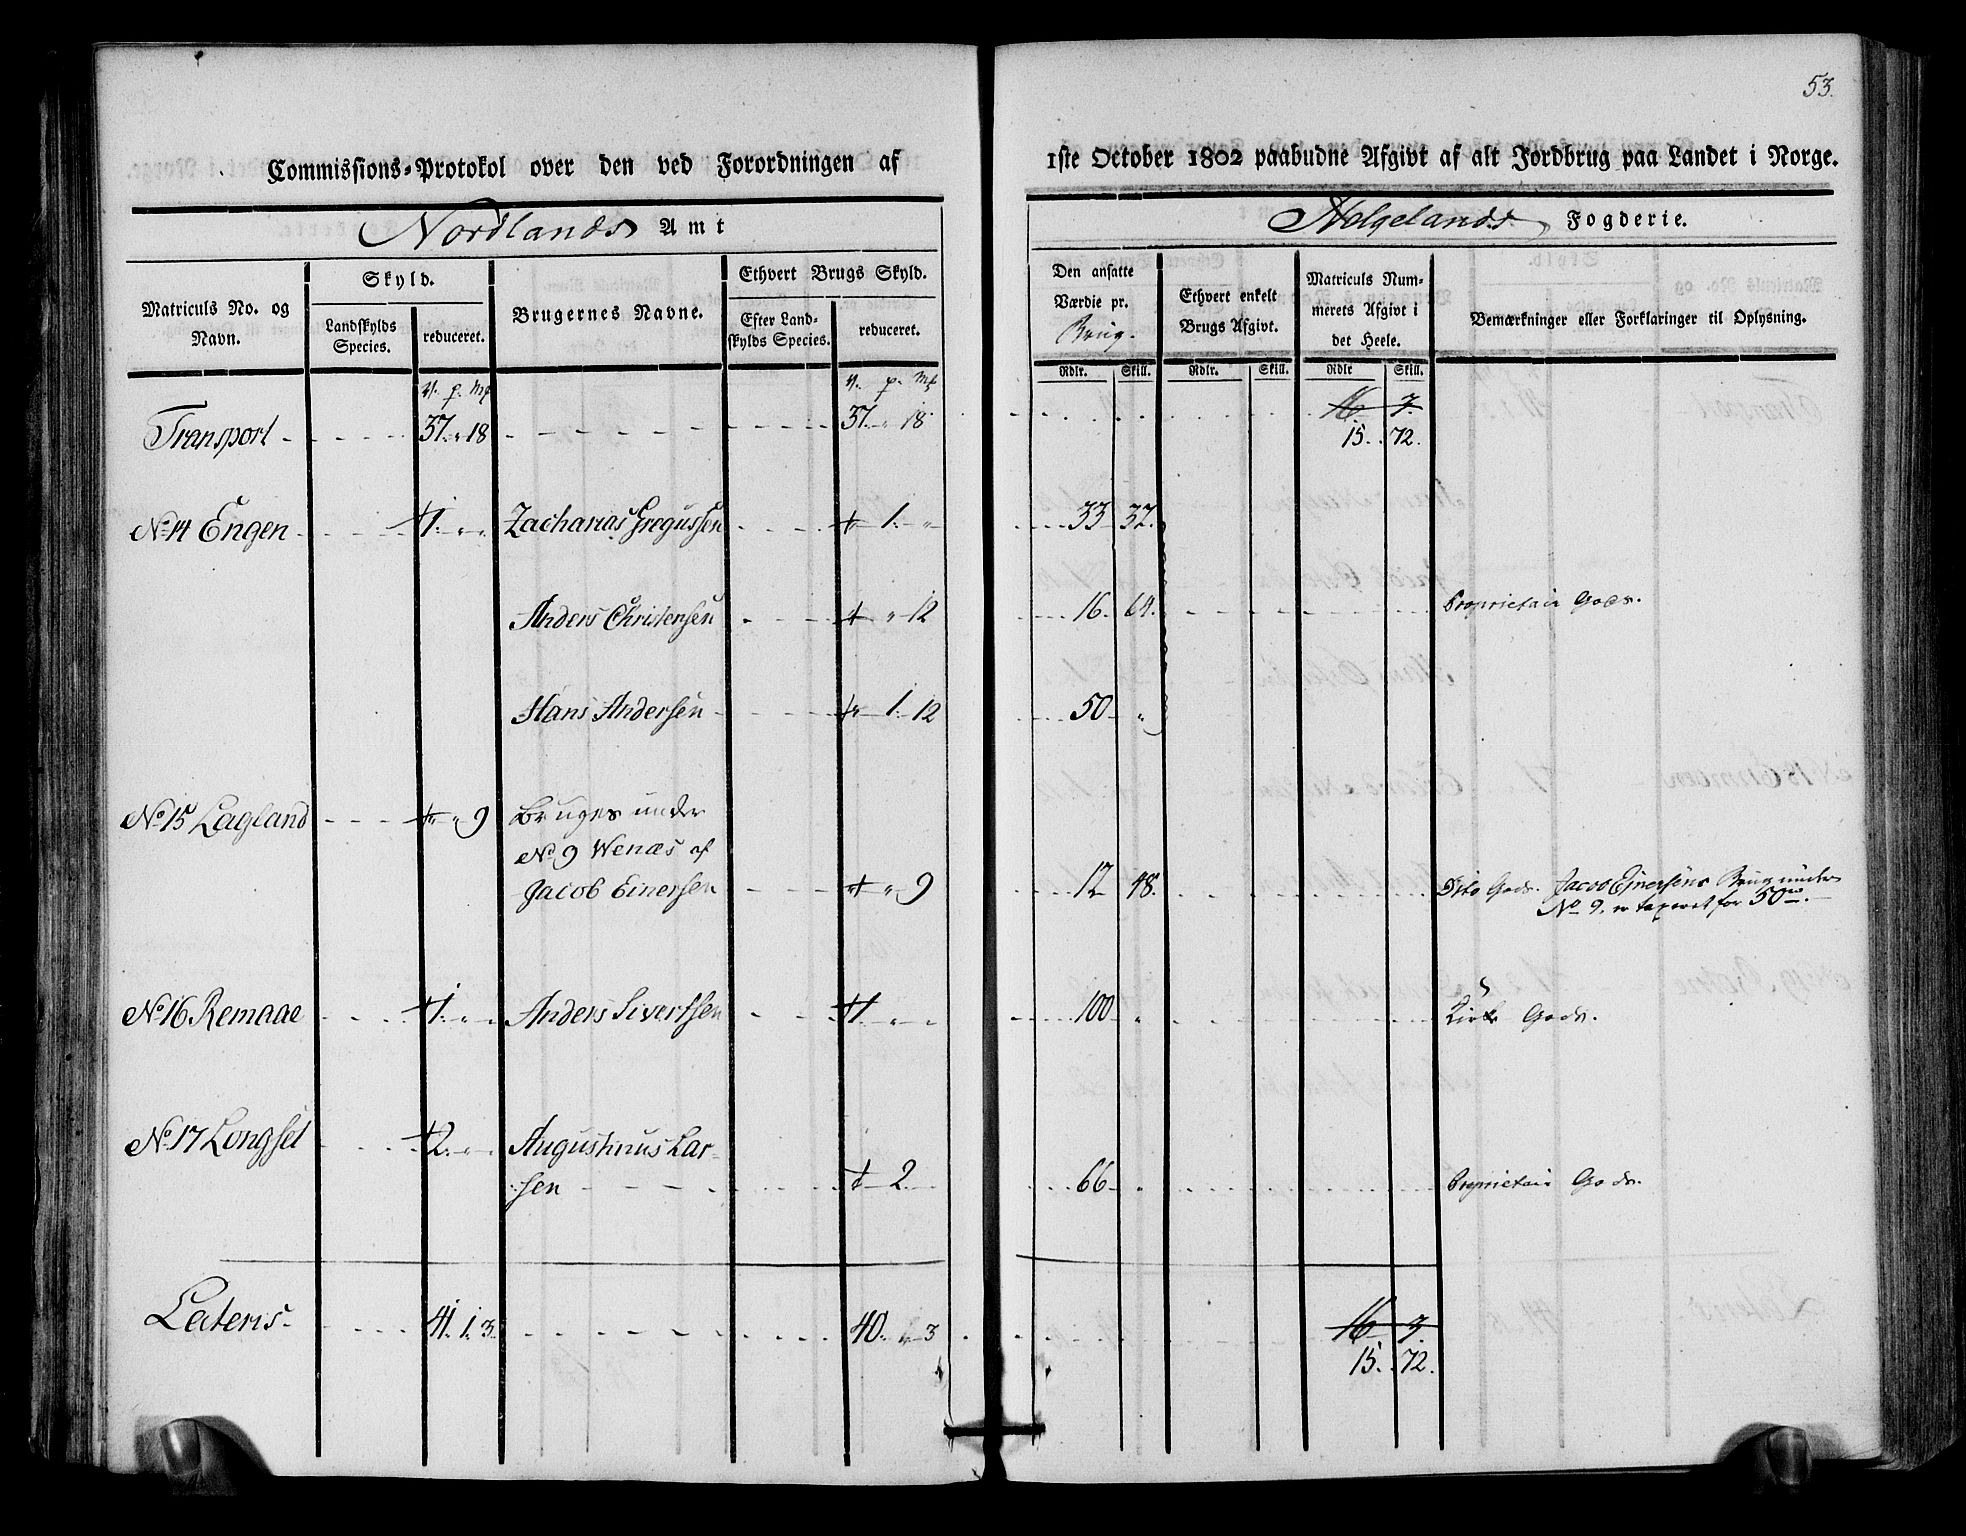 53.
Commissions-Protokol over den ved Forordningen af 1ste October 1802 paabudne Afgivt af alt Jordbrug paa Landet i Norge.
Nordlands Amt
Helgelands Fogderie.
Matriculs No. og Navn.
Skyld.
Landskylds Species.
reduceret.
Brugernes Navne.
Ethvert Brugs Skyld.
Efter Landskylds Species.
reduceret.
Den ansatte Værdie pr. Brug.
Ethvert enkelt Brugs Afgivt.
Matriculs Nummerets Afgivt i det Heele.
Bemærkninger eller Forklaringer til Oplysning.
Rdlr. Skill. Rdlr. Skill. Rdlr Skill.
V. p. Mk V. p. Mk
Transport 37. " 18 37. " 18 16 7.
15. 72.
No 14 Engen 1. " " Zacharias Gregussen 1. " 33 32.
Anders Christensen " 12 16. 64. Proprietair Gods.
Hans Andersen 1. 12 50 "
No 15 Lagland " " 9 Bruges under
No 9 Wenæs af
Jacob Einersen " 9 12 48. Dito Gods. Jacob Einersens Brug under
No 9. er taxeret for 50
No 16 Remaae 1. " " Anders Sivertsen 1 " " 100 " Kirke Gods.
No 17 Longset 2. " " Augustinus Lar-
sen 2. 66 " Proprietair Gods.
Lateris 41. 1. 3 40. " 3 16 7.
15. 72.